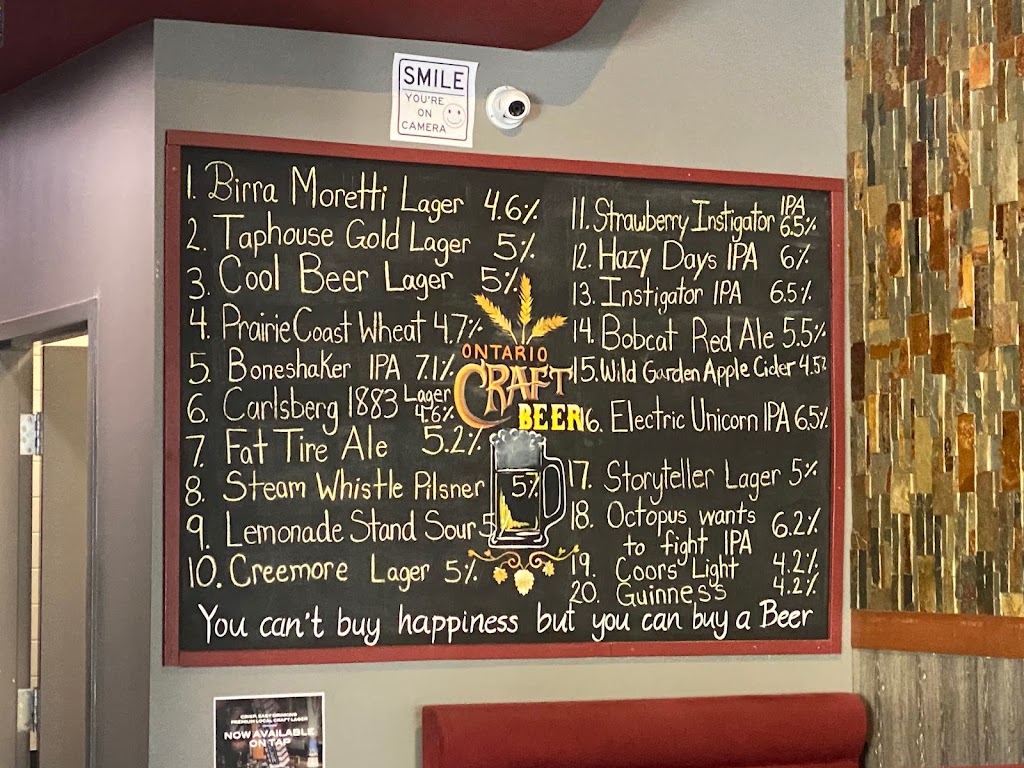 SMILE
YOU'RE
ON
CAMERA
1. Birra Moretti Lager 4.6%
2. Taphouse Gold Lager 5%
3. Cool Beer Lager 5%
4. Prairie Coast Wheat 4.7%
5. Boneshaker IPA 7.1%
6. Carlsberg 1883 Lager 4.6%
7. Fat Tire Ale 5.2%
8. Steam Whistle Pilsner 5%
9. Lemonade Stand Sour 5
10. Creemore Lager 5%
ONTARIO
CRAFT
BEER
11. Strawberry Instigator IPA 6.5%
12. Hazy Days IPA 6%
13. Instigator IPA 6.5%
14. Bobcat Red Ale 5.5%
15. Wild Garden Apple Cider 4.5%
16. Electric Unicorn IPA 6.5%
17. Storyteller Lager 5%
18. Octopus wants
to fight IPA 6.2%
19. Coors Light 4.2%
20. Guinness 4.2%
You can't buy happiness but you can buy a Beer
CRISP, EASY DRINKING
PREMIUM LOCAL CRAFT LAGER
NOW AVAILABLE
ON TAP